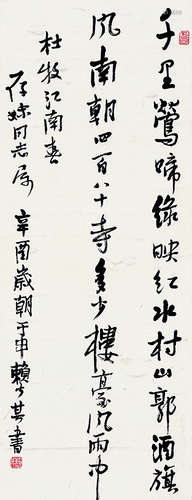 千里鶯啼綠映紅水村山郭酒旗
風南朝四百八十寺多少樓臺風雨中
杜牧江南春
同志属
辛酉歲朝于申賴少其書